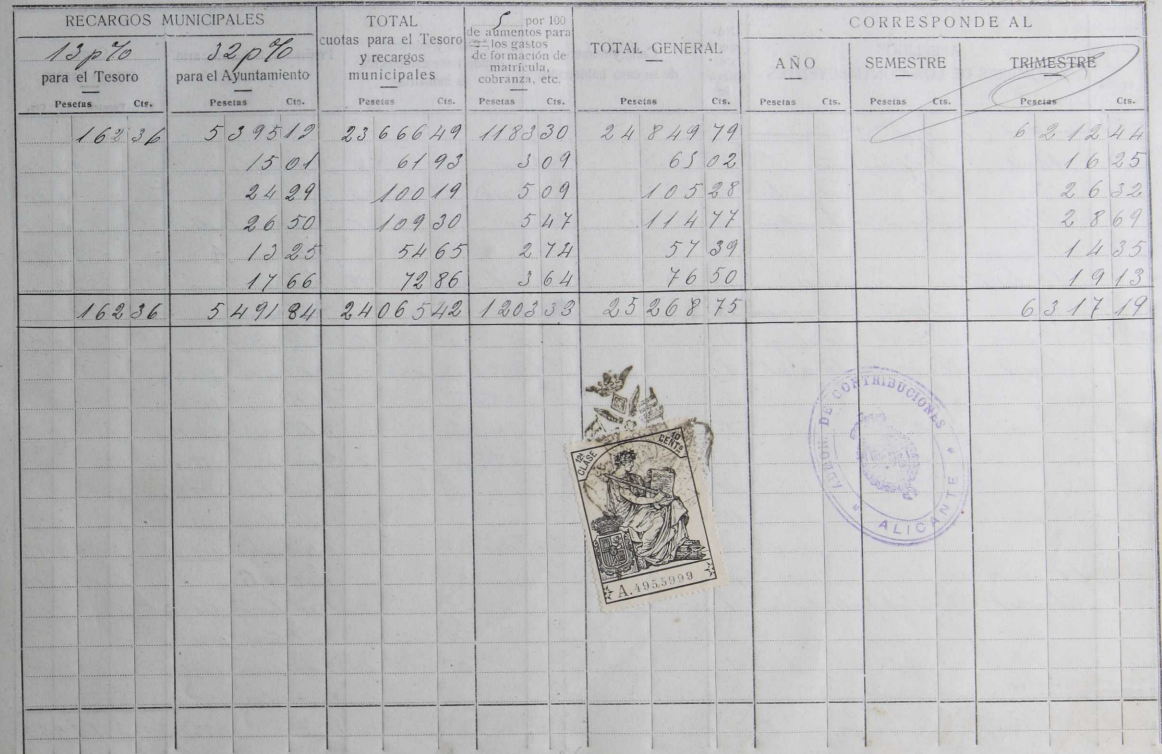 RECARGOS MUNICIPALES
13 p% para el Tesoro Pesetas Cts.
32 p% para el Ayuntamiento Pesetas Cts.
TOTAL cuotas para el Tesoro y recargos municipales Pesetas Cts.
5 por 100 de aumentos para los gastos de formación de matrícula, cobranza, etc. Pesetas Cts.
TOTAL GENERAL Pesetas Cts.
CORRESPONDE AL
AÑO Pesetas Cts.
SEMESTRE Pesetas Cts.
TRIMESTRE Pesetas Cts.
162 36 5395 12 23666 49 1183 30 24849 79 6212 44
15 01 61 93 3 09 65 02 16 25
24 29 100 19 5 09 105 28 26 32
26 50 109 30 5 47 114 77 28 69
13 25 54 65 2 74 57 39 14 35
17 66 72 86 3 64 76 50 19 13
162 36 5491 84 24065 42 1203 33 25268 75 6317 19
12ª CLASE
10 CENTS
A.4955999
ADMON. DE CONTRIBUCIONES
* ALICANTE *